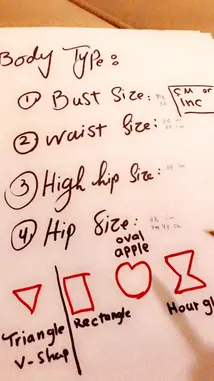 Body Type:
① Bust Size:
CM or
INC
② waist Size:
③ High hip Size:
④ Hip Size:
oval
apple
Rectangle
Hour gl
Triangle
V-Shap